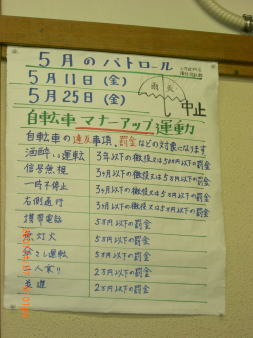 5月のパトロール
5月11日(金)
5月25日(金)
雨天
中止
自転車 マナーアップ運動
自転車の違反事項、罰金などの対象になります
酒酔い運転 3年以下の懲役又は50万円以下の罰金
信号無視 3ヶ月以下の懲役又は5万円以下の罰金
一時不停止 3ヶ月以下の懲役又は5万円以下の罰金
右側通行 3ヶ月以下の懲役又は5万円以下の罰金
携帯電話 5万円以下の罰金
無灯火 5万円以下の罰金
傘さし運転 5万円以下の罰金
二人乗り 2万円以下の罰金
並進 2万円以下の罰金